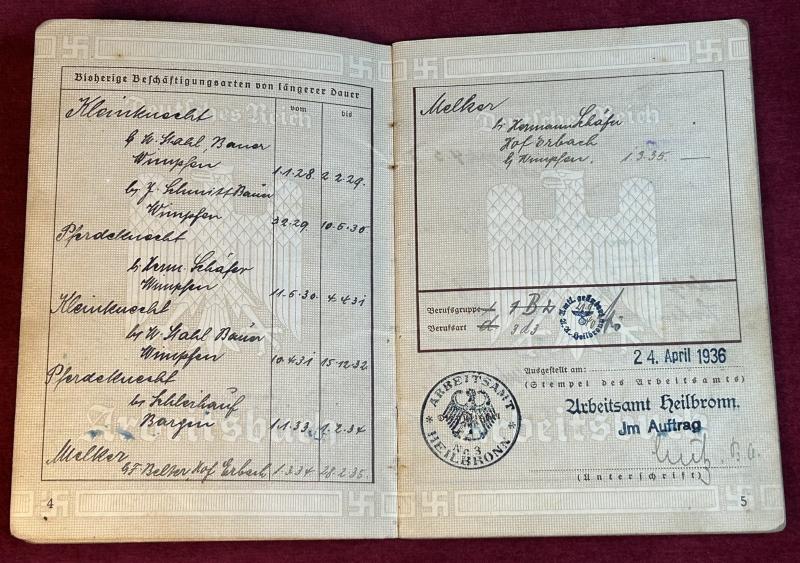 Bisherige Beschäftigungsarten von längerer Dauer
vom bis
Deutsches Reich
Kleinknecht
b/ W. Stahl, Bauer
Wimpfen 1.1.28. 2.2.29.
b/ J. Schmitt Bauer
Wimpfen 3.2.29 10.5.30.
Pferdeknecht
b/ Herm. Schäfer
Wimpfen 11.5.30. 4.4.31
Kleinknecht
b/ W. Stahl Bauer
Wimpfen 10.4.31 15.12.32
Pferdeknecht
b/ Schleihauf
Bargen 1.1.33. 1.2.34.
Arbeitsbuch
Melker
Hof Erbach 1.3.34. 28.2.35.
4
Deutsches Reich
Melker
b/ Hermann Schäfer
Hof Erbach
b/ Wimpfen. 1.3.35. —
Berufsgruppe 4 B 2
Berufsart d 3d3
Amtl. geändert
A.A. Heilbronn
Ausgestellt am: 24. April 1936
(Stempel des Arbeitsamts)
Arbeitsamt Heilbronn.
Im Auftrag
(Unterschrift)
ARBEITSAMT
No 3
HEILBRONN
Arbeitsbuch
5